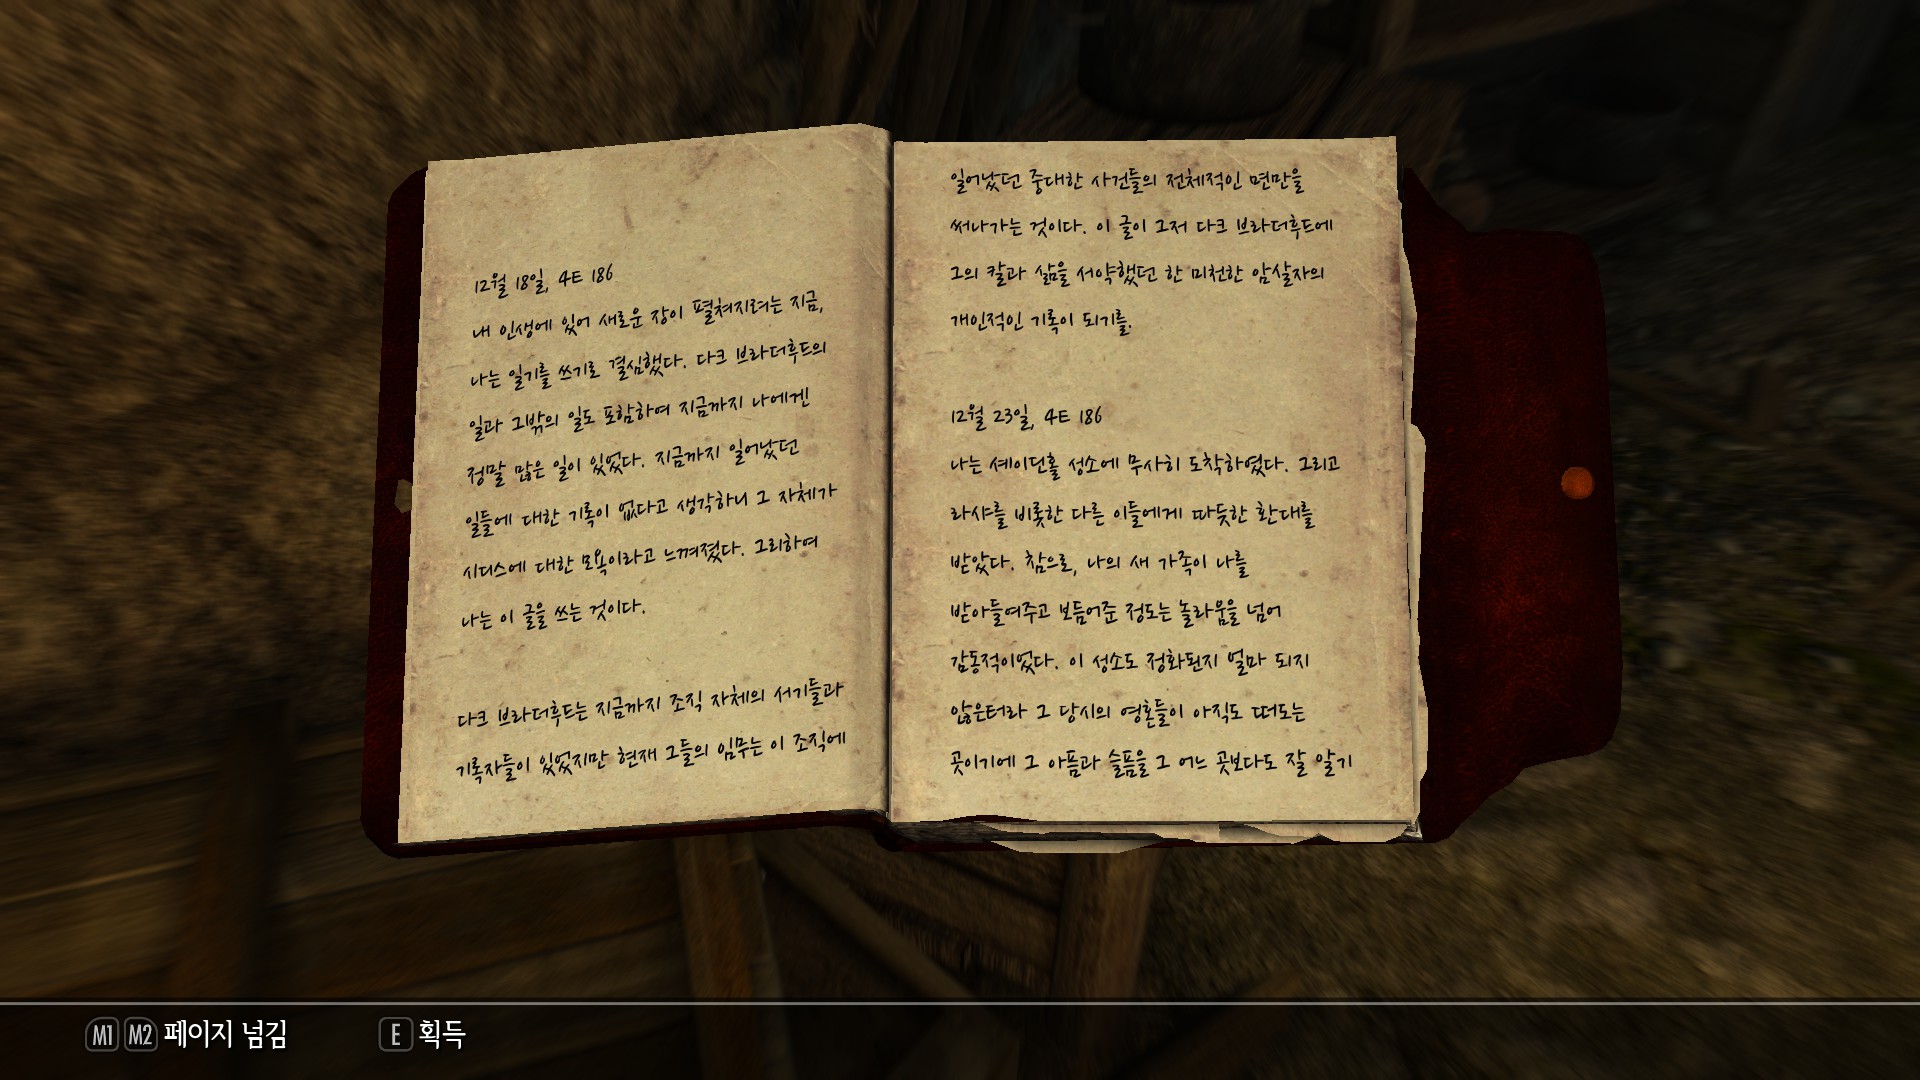 12월 18일, 4E 186
내 인생에 있어 새로운 장이 펼쳐지려는 지금,
나는 일기를 쓰기로 결심했다. 다크 브라더후드의
일과 그밖의 일도 포함하여 지금까지 나에겐
정말 많은 일이 있었다. 지금까지 일어났던
일들에 대한 기록이 없다고 생각하니 그 자체가
시디스에 대한 모욕이라고 느껴졌다. 그리하여
나는 이 글을 쓰는 것이다.
다크 브라더후드는 지금까지 조직 자체의 서기들과
기록자들이 있었지만 현재 그들의 임무는 이 조직에
일어났던 중대한 사건들의 전체적인 면만을
써나가는 것이다. 이 글이 그저 다크 브라더후드에
그의 칼과 삶을 서약했던 한 미천한 암살자의
개인적인 기록이 되기를.
12월 23일, 4E 186
나는 셰이던홀 성소에 무사히 도착하였다. 그리고
라샤를 비롯한 다른 이들에게 따듯한 환대를
받았다. 참으로, 나의 새 가족이 나를
받아들여주고 보듬어준 정도는 놀라움을 넘어
감동적이었다. 이 성소도 정화된지 얼마 되지
않은터라 그 당시의 영혼들이 아직도 떠도는
곳이기에 그 아픔과 슬픔을 그 어느 곳보다도 잘 알기
M1 M2 페이지 넘김
E 획득